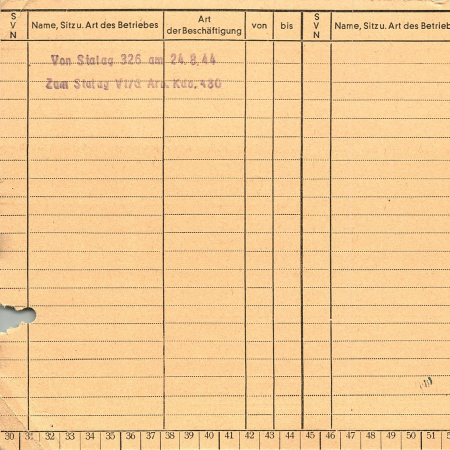 S V N Name, Sitz u. Art des Betriebes Art der Beschäftigung von bis S V N Name, Sitz u. Art des Betriebes
Von Stalag 326 am 24.8.44
Zum Stalag VI/G Arb. Kdo. 430
30 31 32 33 34 35 36 37 38 39 40 41 42 43 44 45 46 47 48 49 50 51